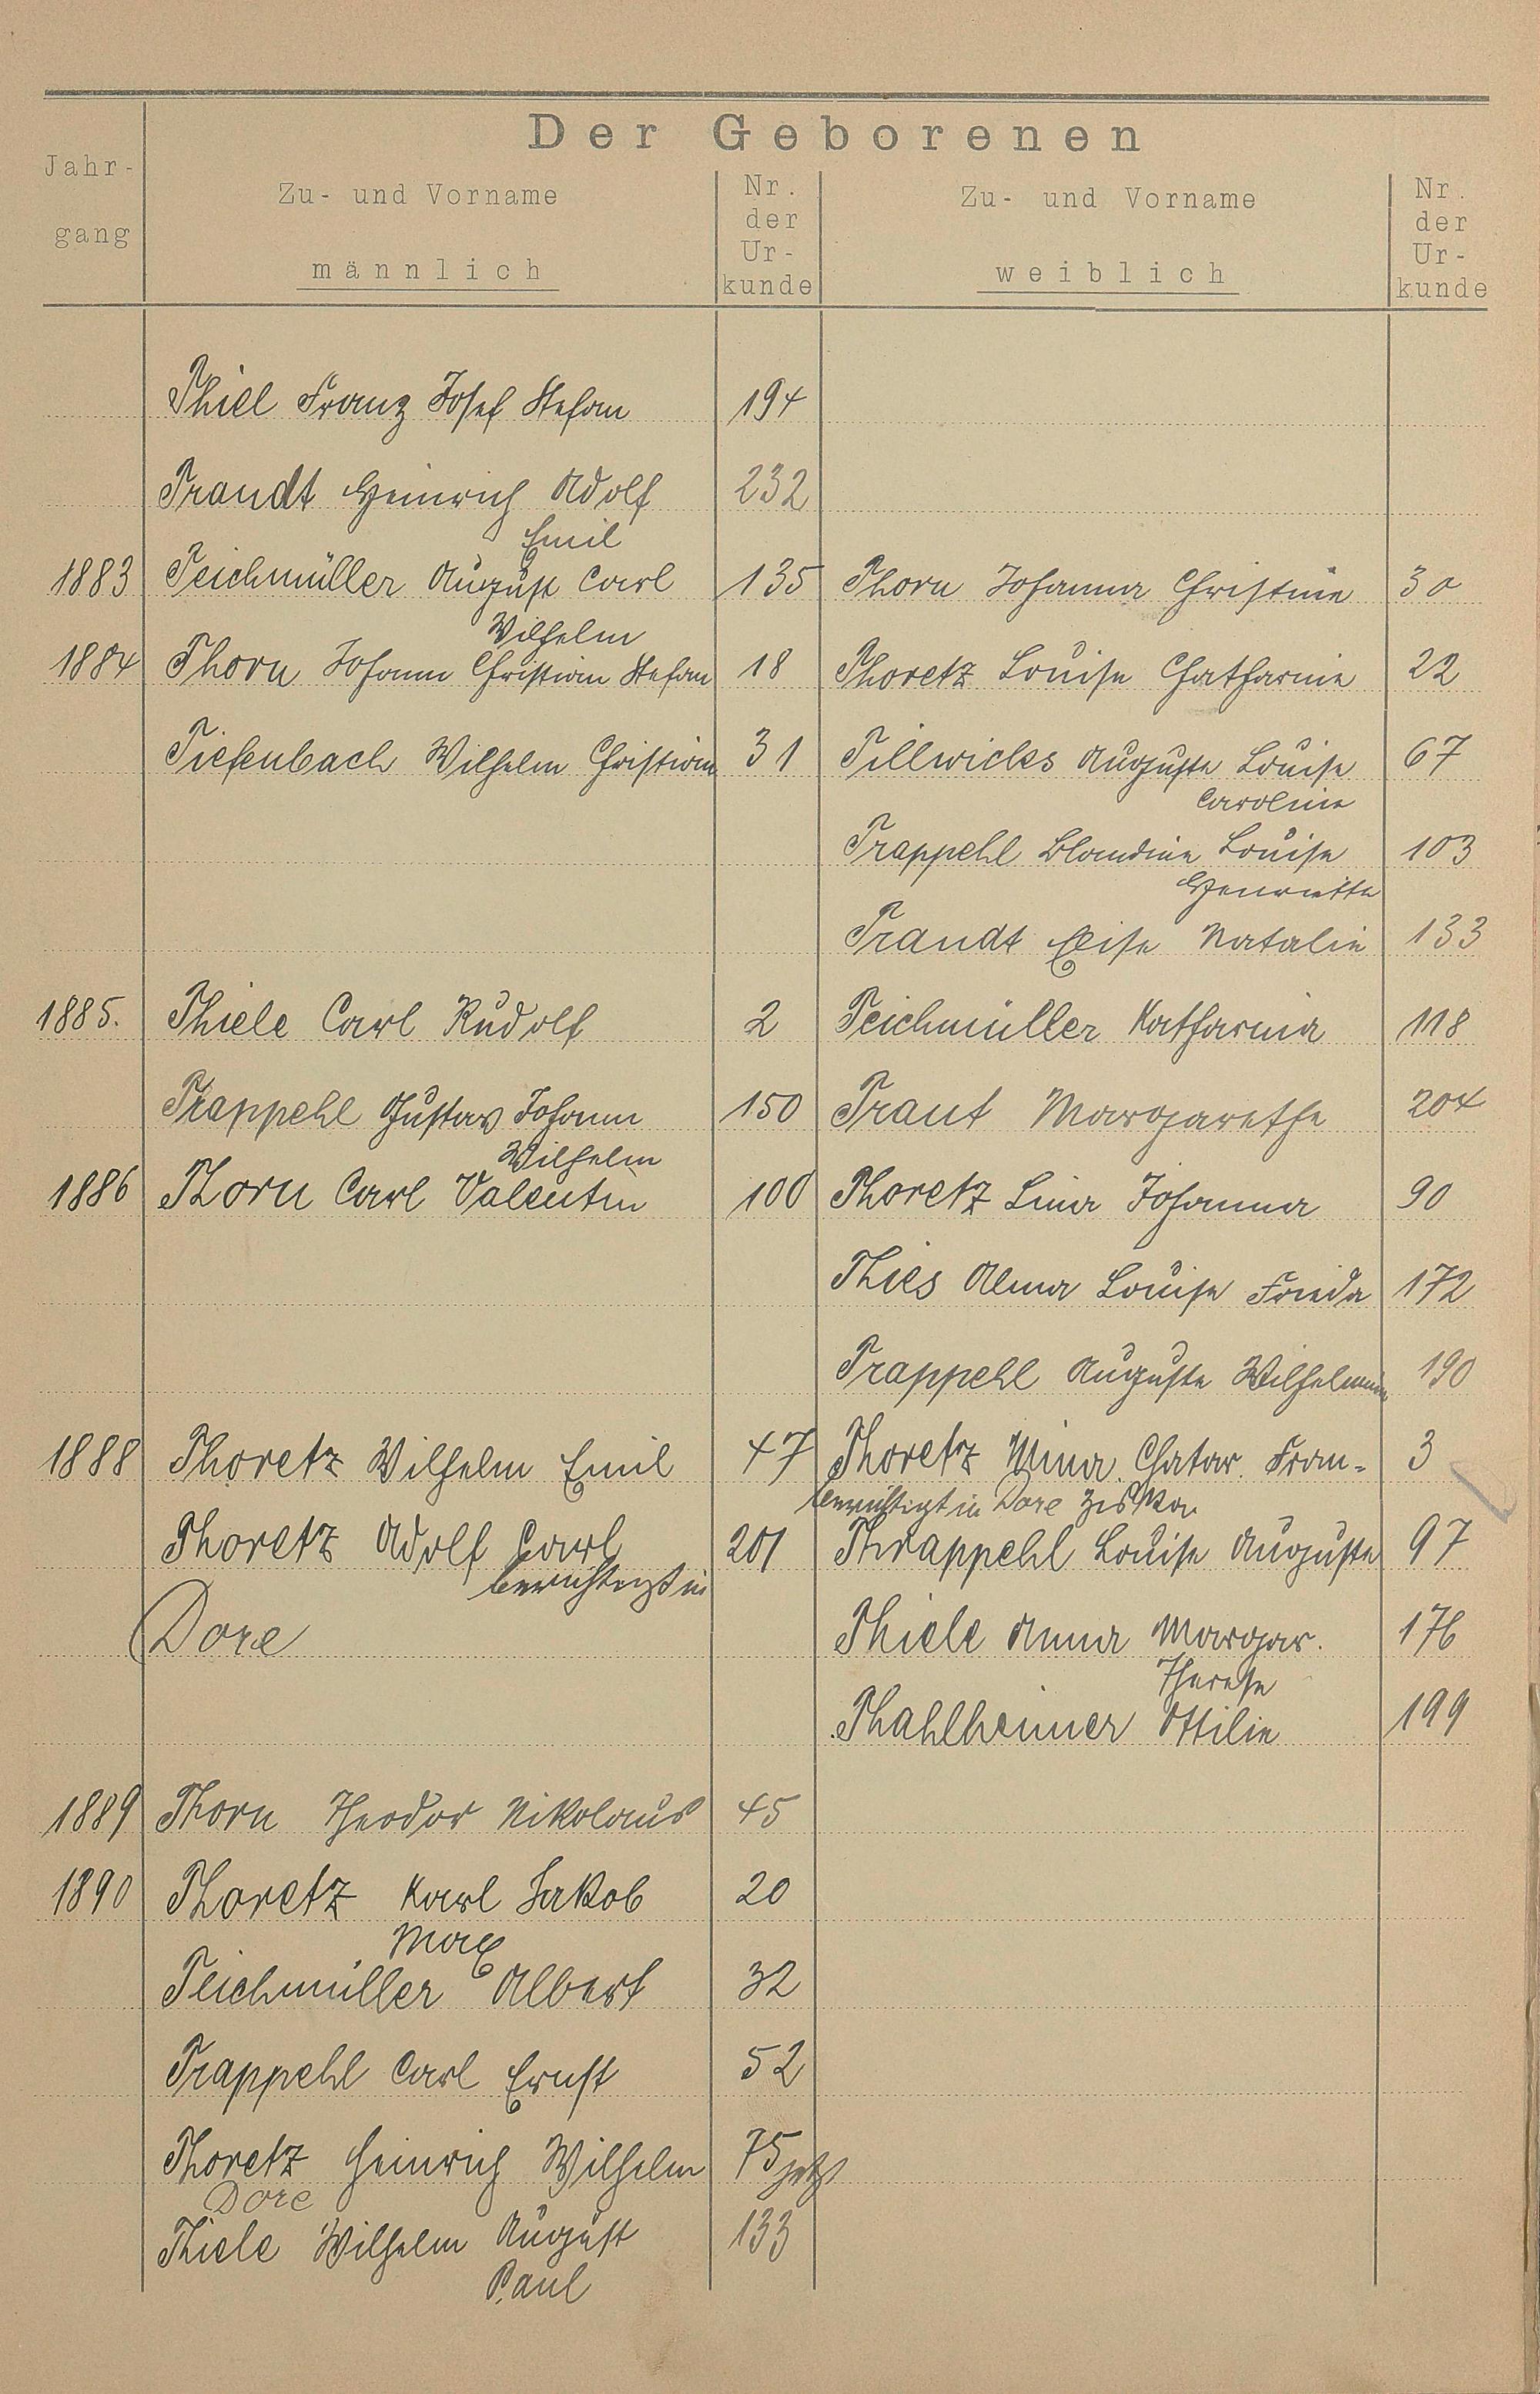 Der Geborenen
Jahrgang
Zu- und Vorname männlich
Nr. der Urkunde
Zu- und Vorname weiblich
Nr. der Urkunde
Thiel Franz Josef Stefan 194
Trandt Heinrich Adolf 232
Emil
1883 Teichmüller August Carl 135 Thorn Johanna Christine 30
Wilhelm
1884 Thorn Johann Christian Stefan 18 Thoretz Louise Chatharine 22
Tiefenbach Wilhelm Christian 31 Tillwicks Auguste Louise 67
Caroline
Trappehl Blandine Louise 103
Henriette
Trandt Elise Natalie 133
1885. Thiele Carl Rudolf 2 Teichmüller Katharina 118
Trappehl Gustav Johann 150 Traut Margarethe 204
Wilhelm
1886 Thorn Carl Valentin 100 Thoretz Lina Johanna 90
Thies Alma Louise Frieda 172
Trappehl Auguste Wilhelmine 190
1888 Thoretz Wilhelm Emil 47 Thoretz Mina Chatar. Fran- 3
berichtigt in Dore ziska
Thoretz Adolf Carl 201 Thrappehl Louise Auguste 97
berichtigt in
Dore Thiele Anna Margar. 176
Therese
Thahlheimer Ottilie 199
1889 Thorn Theodor Nikolaus 45
1890 Thoretz Karl Jakob 20
Max
Teichmüller Albert 32
Trappehl Carl Ernst 52
Thoretz Heinrich Wilhelm 75 jetzt
Dore
Thiele Wilhelm August 133
Paul